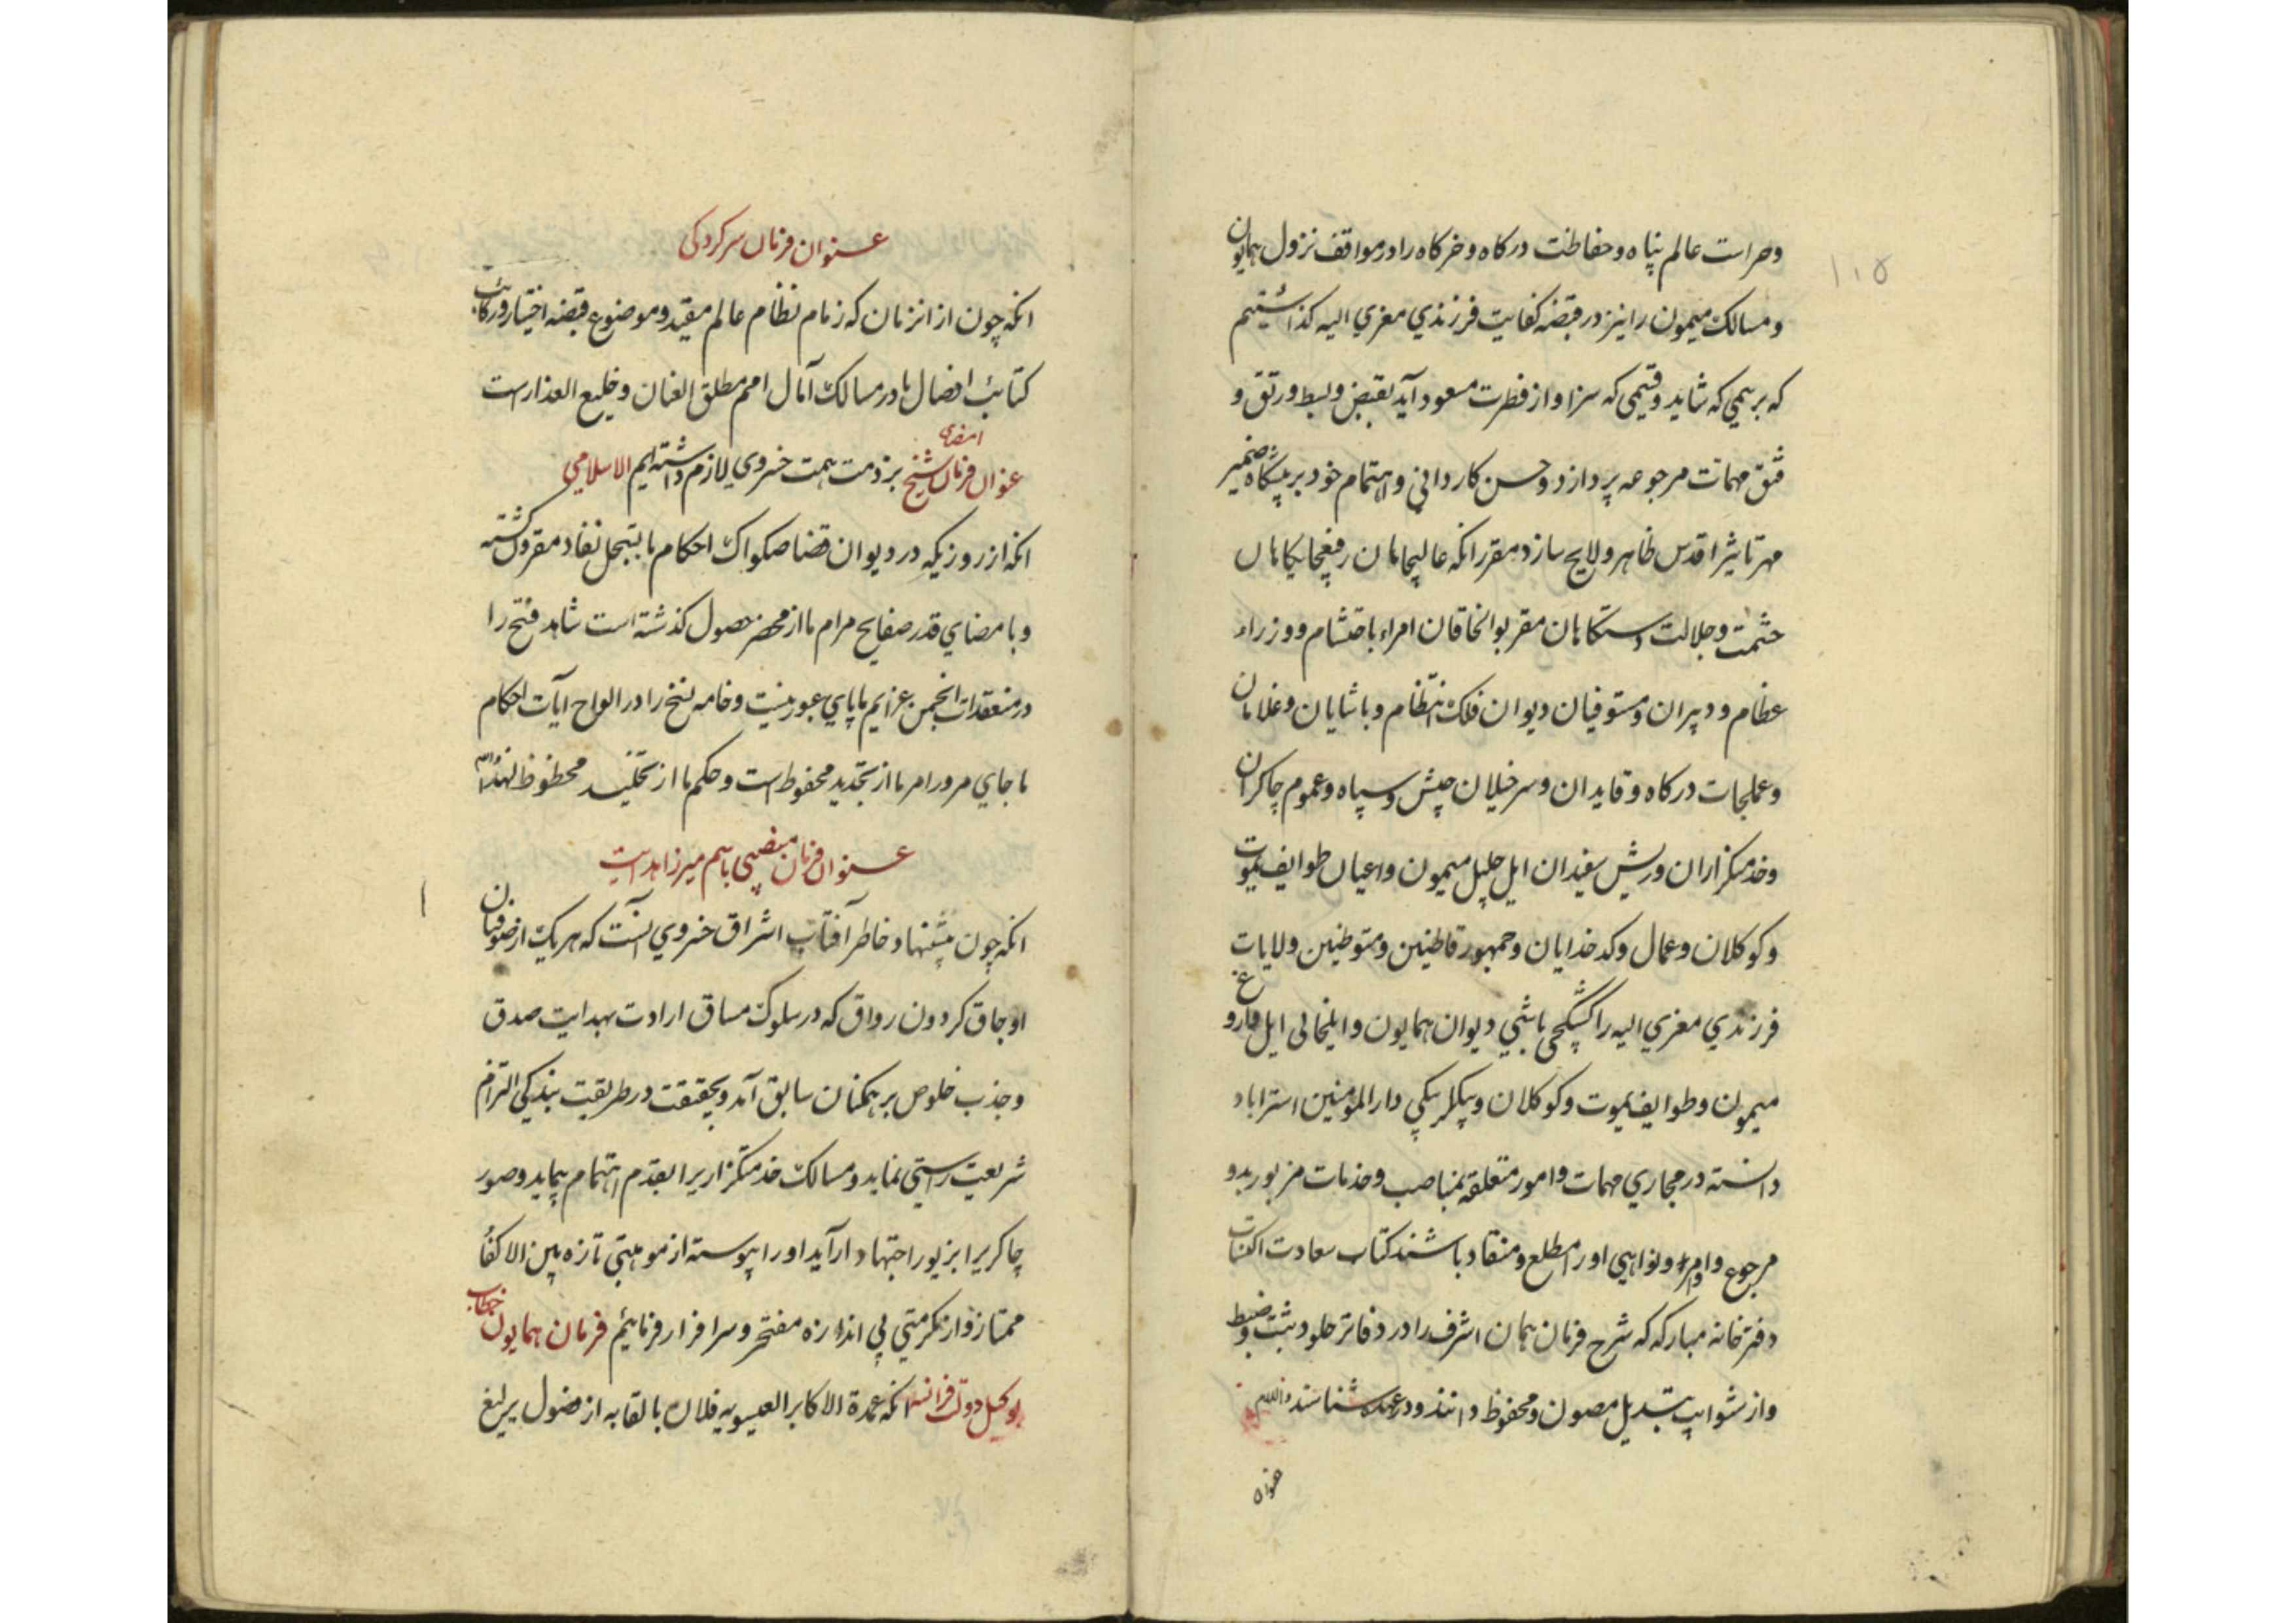 ۱۱۵
وحراست عالم پناه وحفاظت درکاه وخرکاه را در مواقف نزول همایون
ومسالک میمون را نیز در قبضه کفایت فرزندی معزی الیه کذاشتیم
که برسمی که شاید وقسمی که سزاوار فطرت مسعود آید بقبض وبسط ورتق و
فتق مهمات مرجوعه پردازد وحسن کاردانی واهتمام خود بر پیشکاه ضمیر
مهر تاثیر اقدس ظاهر ولایح سازد مقرر انکه عالیجاهان رفیعجایکاهان
حشمت وجلالت دستکاهان مقربوالخاقان امراء با احتشام ووزراء
عظام ودبیران ومستوفیان دیوان فلک انتظام وپاشایان وغلامان
وعملجات درکاه وقایدان وسرخیلان جیش وسپاه وعموم چاکران
وخدمتکزاران وریش سفیدان ایل جلیل میمون واعیان طوایف یموت
وکوکلان وعمال وکدخدایان وجمهور قاطنین ومتوطنین ولایات
فرزندی معزی الیه را کشیکچی باشی دیوان همایون وایلخانی ایل قاروغ
میمون وطوایف یموت وکوکلان وبیکلربیکی دارالمؤمنین استراباد
دانسته در مجاری مهمات وامور متعلقه بمناصب وخدمات مزبور بدو
مرجوع واوامر ونواهی او را مطلع ومنقاد باشند کتاب سعادت اکتساب
دفترخانه مبارکه که شرح فرمان همان اشرف را در دفاتر خلود ثبت وضبط
واز شوایب تبدیل مصون ومحفوظ دانند ودر عهده شناسند والسلام
عنوان
عنوان فرمان سرکردکی
انکه چون از انزمان که زمام نظام عالم مقید وموضوع قبضه اختیار ورکائب
کتائب افضال ما در مسالک آمال امم مطلق العنان وخلیع العذار است
عنوان فرمان امضای شیخ الاسلامی بر ذمت همت خسروی لازم داشته ایم
انکه از روزیکه در دیوان قضا صکواک احکام ما بتسجل نفاد مقرون کشته
وبامضای قدر صفایح مرام ما از محضر حصول کذشته است شاهد فتح را
در منعقدات انجمن عزایم ما پای عبور نیست وخامه نسخ را در الواح آیات احکام
ما جای مرور امر ما از تجدید محفوظ است وحکم ما از تخلید محظوظ لهذا
عنوان فرمان منصبی باسم میرزا هدایت
انکه چون پیشنهاد خاطر آفتاب اشراق خسروی آنست که هریک از صوفیان
اوجاق کردون رواق که در سلوک مساق ارادت بهدایت صدق
وجذب خلوص بر همکنان سابق آمد وبحقیقت در طریقت بندکی التزام
شریعت راستی نماید ومسالک خدمتکزاریرا بقدم اهتمام پیماید وصور
چاکریرا بزیور اجتهاد آراید او را پیوسته از موهبتی تازه بین الاکفاء
ممتاز واز مکرمتی بی اندازه مفتخر وسرافراز فرمائیم فرمان همایون خطاب
بوکیل دولت فرانسه انکه عمدة الاکابر العیسویه فلان بالقابه از فضول یرلیغ